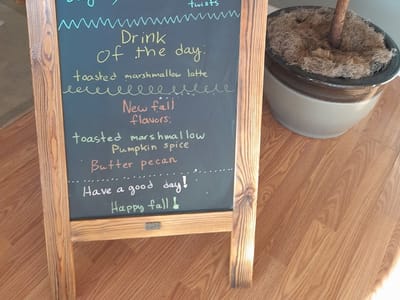 twists
Drink
Of the day:
toasted marshmallow latte
New fall
flavors:
toasted marshmallow
Pumpkin spice
Butter pecan
Have a good day!
Happy fall!